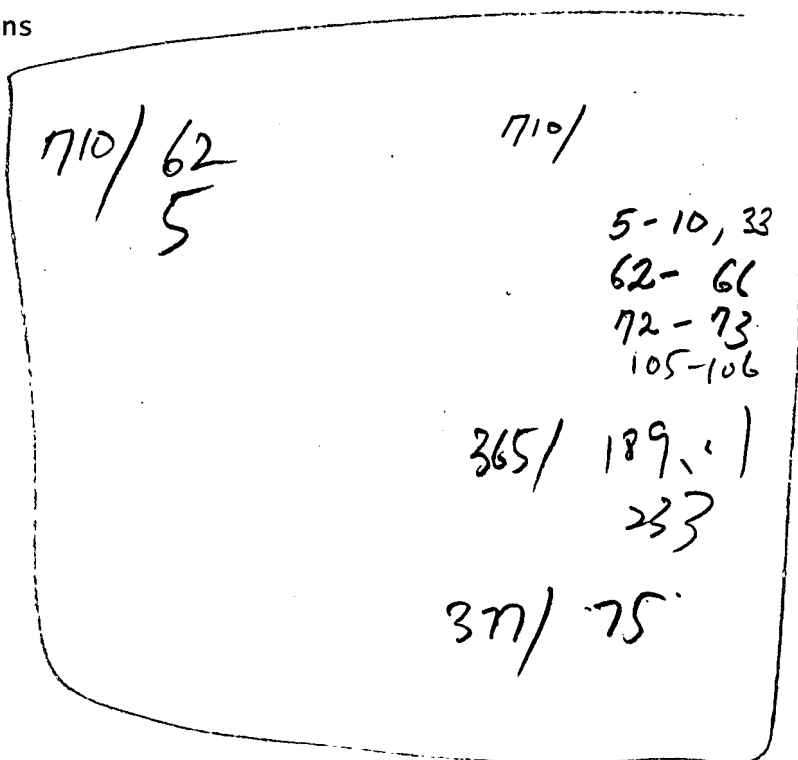 ns
710/ 62
5
710/
5-10, 33
62- 66
72-73
105-106
365/ 189.1
233
377/ 75